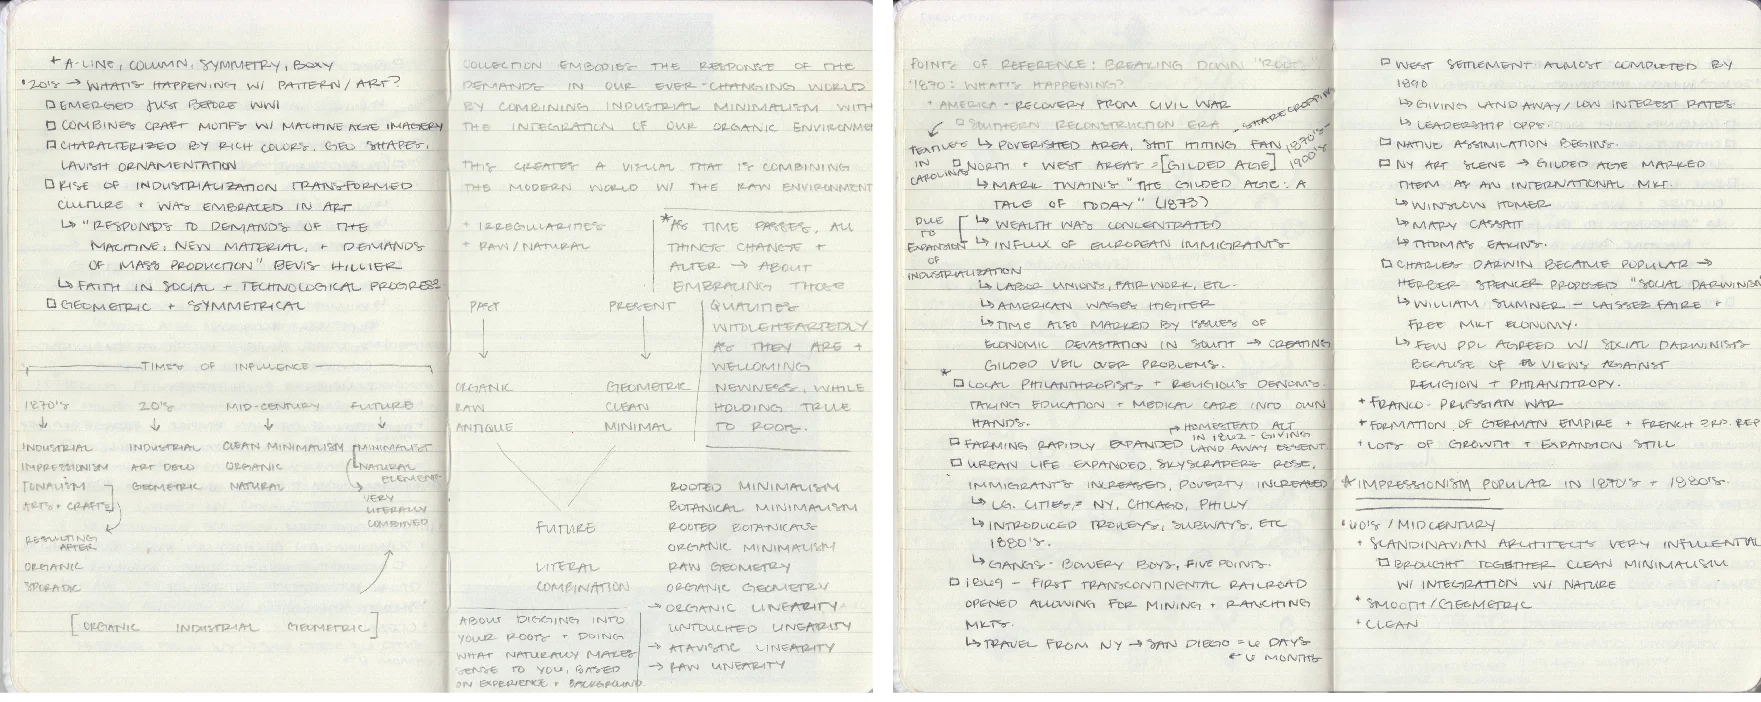 + A-LINE, COLUMN, SYMMETRY, BOXY
• 20'S → WHAT'S HAPPENING W/ PATTERN/ART?
□ EMERGED JUST BEFORE WWI
□ COMBINES CRAFT MOTIFS W/ MACHINE AGE IMAGERY
□ CHARACTERIZED BY RICH COLORS, GEO SHAPES,
LAVISH ORNAMENTATION
□ RISE OF INDUSTRIALIZATION TRANSFORMED
CULTURE + WAS EMBRACED IN ART
↳ "RESPONDS TO DEMANDS OF THE
MACHINE, NEW MATERIAL, + DEMANDS
OF MASS PRODUCTION" BEVIS HILLIER
↳ FAITH IN SOCIAL + TECHNOLOGICAL PROGRESS
□ GEOMETRIC + SYMMETRICAL
TIMES OF INFLUENCE
1870'S 20'S MID-CENTURY FUTURE
INDUSTRIAL INDUSTRIAL CLEAN MINIMALISM MINIMALIST
IMPRESSIONISM ART DECO ORGANIC NATURAL
ELEMENTS
TONALISM GEOMETRIC NATURAL
VERY
ARTS + CRAFTS LITERALLY
COMBINED
RESULTING
AFTER
ORGANIC
SPORADIC
[ORGANIC INDUSTRIAL GEOMETRIC]
COLLECTION EMBODIES THE RESPONSE OF THE
DEMANDS IN OUR EVER-CHANGING WORLD
BY COMBINING INDUSTRIAL MINIMALISM WITH
THE INTEGRATION OF OUR ORGANIC ENVIRONMENT
THIS CREATES A VISUAL THAT IS COMBINING
THE MODERN WORLD W/ THE RAW ENVIRONMENT
+ IRREGULARITIES
+ RAW/NATURAL
*AS TIME PASSES, ALL
THINGS CHANGE +
ALTER → ABOUT
EMBRACING THOSE
QUALITIES
WHOLEHEARTEDLY
AS THEY ARE +
WELCOMING
NEWNESS, WHILE
HOLDING TRUE
TO ROOTS.
PAST PRESENT
ORGANIC GEOMETRIC
RAW CLEAN
ANTIQUE MINIMAL
FUTURE
LITERAL
COMBINATION
ROOTED MINIMALISM
BOTANICAL MINIMALISM
ROOTED BOTANICALS
ORGANIC MINIMALISM
RAW GEOMETRY
ORGANIC GEOMETRY
→ ORGANIC LINEARITY
UNTOUCHED LINEARITY
→ ATAVISTIC LINEARITY
→ RAW LINEARITY
ABOUT DIGGING INTO
YOUR ROOTS + DOING
WHAT NATURALLY MAKES
SENSE TO YOU, BASED
ON EXPERIENCE + BACKGROUND.
POINTS OF REFERENCE: BREAKING DOWN "ROOTS"
'1870: WHAT'S HAPPENING?
+ AMERICA - RECOVERY FROM CIVIL WAR
□ SOUTHERN RECONSTRUCTION ERA - SHARECROPPING
1870'S -
1900'S
TEXTILES
IN
CAROLINAS
↳ POVERISHED AREA, SHIT HITTING FAN
□ NORTH + WEST AREAS = [GILDED AGE]
↳ MARK TWAIN'S "THE GILDED AGE: A
TALE OF TODAY" (1873)
DUE
TO
EXPANSION
OF
INDUSTRIALIZATION
↳ WEALTH WAS CONCENTRATED
↳ INFLUX OF EUROPEAN IMMIGRANTS
↳ LABOR UNIONS, FAIR WORK, ETC.
↳ AMERICAN WAGES HIGHER
↳ TIME ALSO MARKED BY ISSUES OF
ECONOMIC DEVASTATION IN SOUTH → CREATING
GILDED VEIL OVER PROBLEMS.
*
□ LOCAL PHILANTHROPISTS + RELIGIOUS DENOMS.
TAKING EDUCATION + MEDICAL CARE INTO OWN
HANDS.
→ HOMESTEAD ACT
IN 1862 - GIVING
LAND AWAY
□ FARMING RAPIDLY EXPANDED
□ URBAN LIFE EXPANDED, SKYSCRAPERS ROSE,
IMMIGRANTS INCREASED, POVERTY INCREASED
↳ LG. CITIES = NY, CHICAGO, PHILLY
↳ INTRODUCED TROLLEYS, SUBWAYS, ETC
1880'S.
↳ GANGS - BOWERY BOYS, FIVE POINTS.
□ 1869 - FIRST TRANSCONTINENTAL RAILROAD
OPENED ALLOWING FOR MINING + RANCHING
MKTS.
↳ TRAVEL FROM NY → SAN DIEGO = 6 DAYS
← 6 MONTHS
□ WEST SETTLEMENT ALMOST COMPLETED BY
1890
↳ GIVING LAND AWAY/LOW INTEREST RATES
↳ LEADERSHIP OPPS.
□ NATIVE ASSIMILATION BEGINS.
□ NY ART SCENE → GILDED AGE MARKED
THEM AS AN INTERNATIONAL MKT.
↳ WINSLOW HOMER
↳ MARY CASSATT
↳ THOMAS EAKINS.
□ CHARLES DARWIN BECAME POPULAR →
HERBER SPENCER PROPOSED "SOCIAL DARWINISM"
↳ WILLIAM SUMNER - LAISSEZ FAIRE +
FREE MKT ECONOMY.
↳ FEW PPL AGREED W/ SOCIAL DARWINISTS
BECAUSE OF VIEWS AGAINST
RELIGION + PHILANTROPY.
+ FRANCO-PRUSSIAN WAR
+ FORMATION OF GERMAN EMPIRE + FRENCH 3RD. REP
+ LOTS OF GROWTH + EXPANSION STILL
* IMPRESSIONISM POPULAR IN 1870'S + 1880'S.
'60'S / MIDCENTURY
+ SCANDINAVIAN ARCHITECTS VERY INFLUENTIAL
□ BROUGHT TOGETHER CLEAN MINIMALISM
W/ INTEGRATION W/ NATURE
+ SMOOTH/GEOMETRIC
+ CLEAN